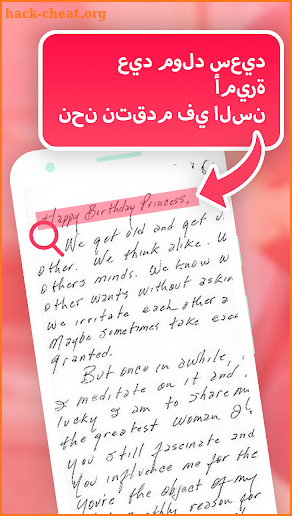 hack-cheat.org
عيد مولد سعيد
أميرة
نحن نتقدم في السن
Happy Birthday Princess,
We get old and get u
other. We think alike. W
others minds. We know w
other wants without askin
we irritate each other a
Maybe sometimes take eac
granted.
But once in awhile,
I meditate on it and
lucky I am to share m
the greatest woman I
You still fascinate and
you influence me for the
You're the object of my
thly reason for